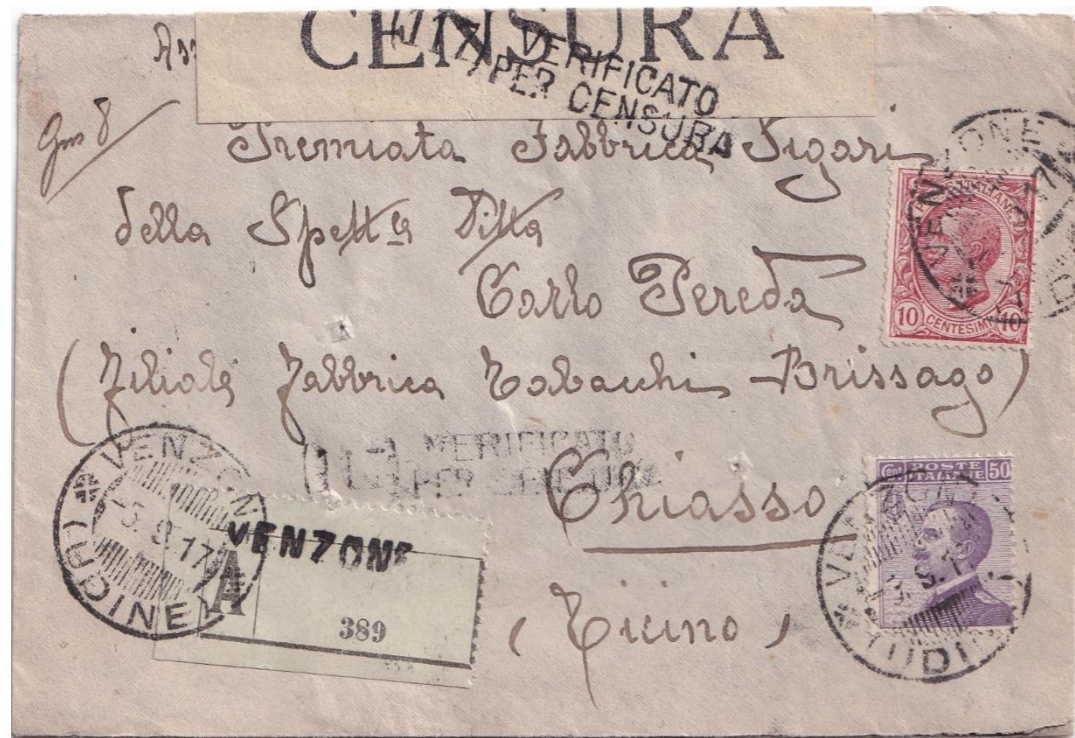 CENSURA
VERIFICATO
PER CENSURA
Premiata Fabbrica Sigari
della Spett.le Ditta
Carlo Pereda
(Filiale Fabbrica Tabacchi Brissago)
VERIFICATO
PER CENSURA
Chiasso
(Ticino)
VENZONE
(UDINE)
10 CENTESIMI 10
VENZONE
UDINE
-3.9.17
VENZONE
A
389
Cent. POSTE ITALIANE 50
VENZONE
(UDINE)